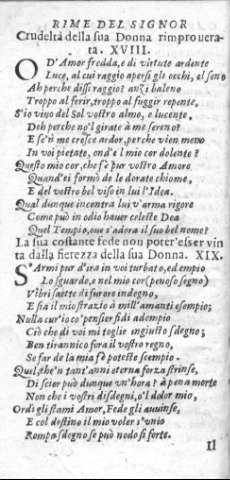 RIME DEL SIGNOR
Crudeltà della sua Donna rimprouera-
ta. XVIII.
O D'Amor fredda, e di virtute ardente
Luce, al cui raggio apersi gli occhi, e'l seno
Ah perche dissi raggio? anzi baleno
Troppo al ferir, troppo al fuggir repente,
S'io viuo del Sol vostro almo, e lucente,
Deh perche no'l girate à me sereno?
E se'n me cresce ardor, perche vien meno
In voi pietate, ond'e'l mio cor dolente?
Questo mio cor, che s'è pur vostro Amore
Quand'ei formò de le dorate chiome,
E del vostro bel viso in lui l'Idea.
Qual dunque incontra lui v'arma rigore
Come può in odio hauer celeste Dea
Quel Tempio, oue s'adora il suo bel nome?
La sua costante fede non poter'esser vin
ta dalla fierezza della sua Donna. XIX.
S'Armi pur d'ira in voi turbato, ed empio
Lo sguardo, e nel mio cor (penoso segno)
Vibri saette di furore indegno,
E sia il mio stratio à mill'amanti esempio;
Nulla cur'io co' pensier fidi adempio
Ciò che di voi mi toglie ingiusto sdegno;
Ben tirannico fora il vostro regno,
So far de la mia fè poteste scempio.
Quel, che'n tant'anni eterna forza strinse,
Di scior può dunque vn'hora? à pena morte
Non che i vostri disdegni, o'l dolor mio,
Ordì gli stami Amor, Fede gli auuinse,
E col destino il mio voler s'vnio
Rompa sdegno se può nodo sì forte.
Il